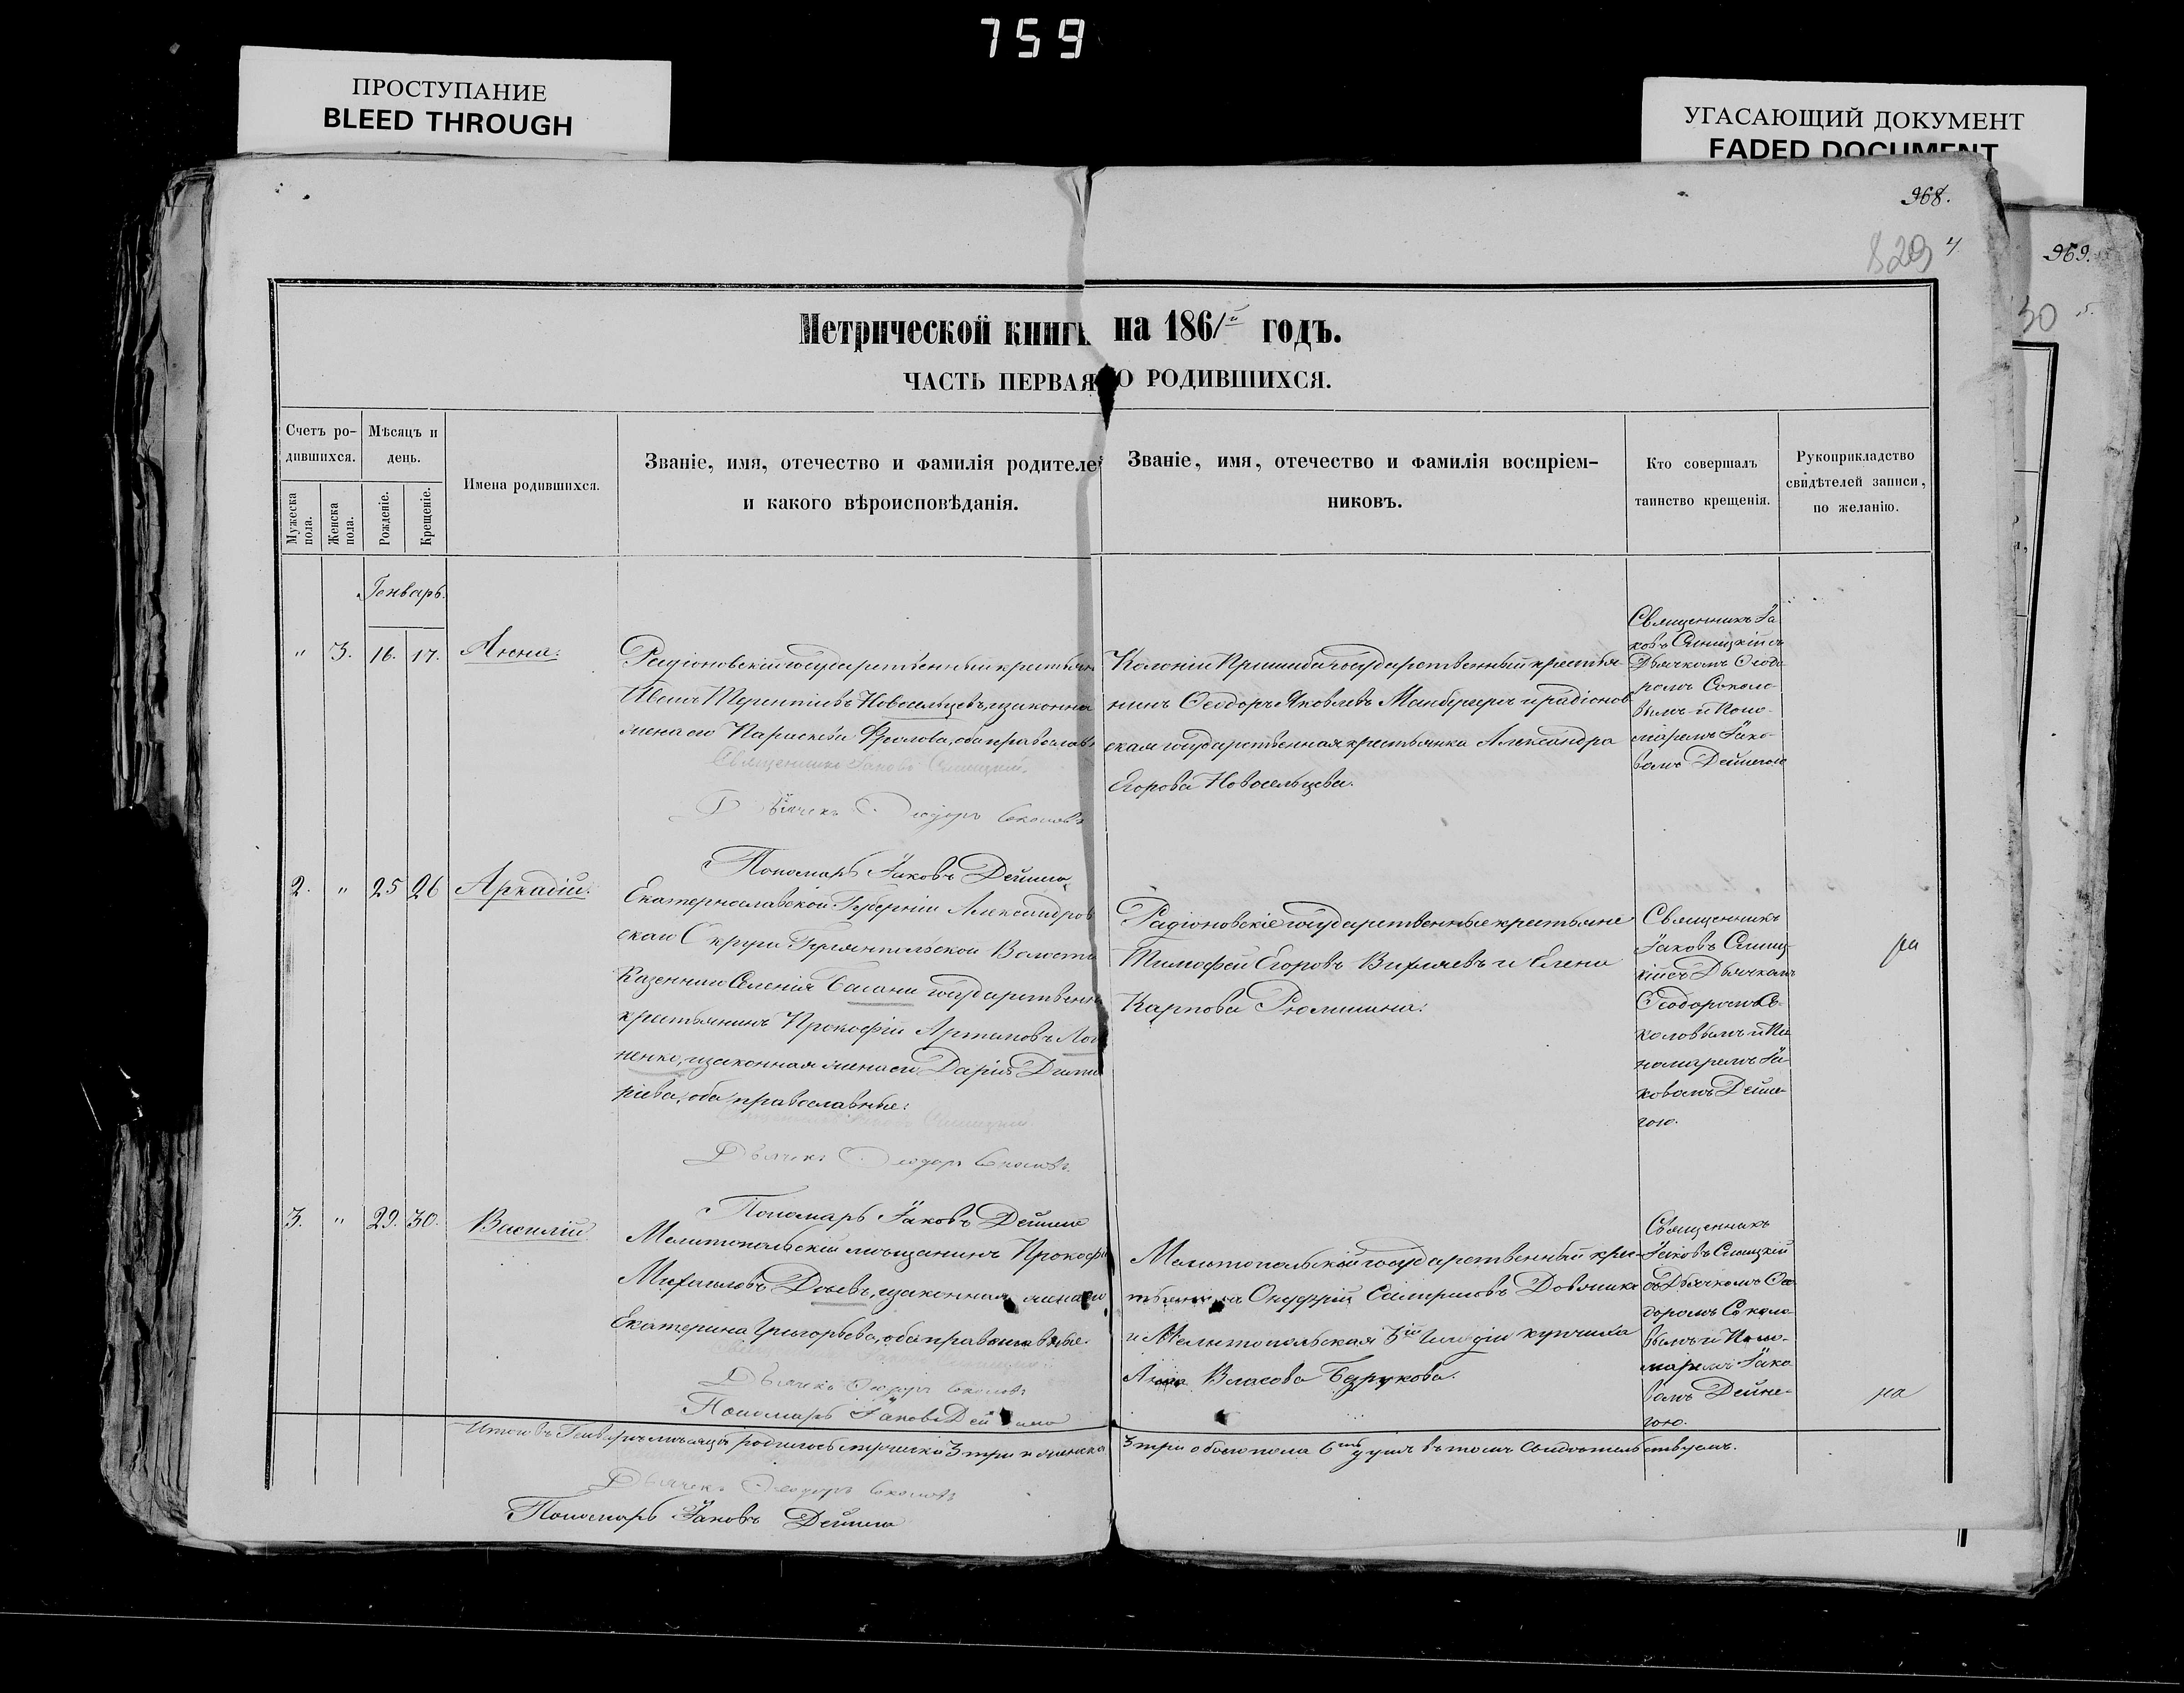 759
ПРОСТУПАНИЕ
BLEED THROUGH
УГАСАЮЩИЙ ДОКУМЕНТ
FADED DOCUMENT
968.
829
4
969.
30
5.
Метрической книги на 1861й годъ.
ЧАСТЬ ПЕРВАЯ О РОДИВШИХСЯ.
Счетъ ро-
дившихся.
Мѣсяцъ и
день.
Мужеска
пола.
Женска
пола.
Рожденіе.
Крещеніе.
Имена родившихся.
Званіе, имя, отечество и фамилія родителей
и какого вѣроисповѣданія.
Званіе, имя, отечество и фамилія воспріем-
никовъ.
Кто совершалъ
таинство крещенія.
Рукоприкладство
свидѣтелей записи,
по желанію.
Генварь.
" 3. 16. 17. Анна.
Радіоновскій государственный крестьян
Иванъ Терентіевъ Новосельцевъ, изаконна
жена его Параскева Фролова, оба православн
Священникъ Іаковъ
Дьячекъ Ѳеодоръ Соколовъ
Пономарь Іаковъ Дейнега
Колоніи Пришиба государственный крестья-
нинъ Ѳеодоръ Яковлевъ и радіонов
ская государственная крестьянка Александра
Егорова Новосельцева.
Священникъ Іа
ковъ съ
Дьячкомъ Ѳеодо
ромъ Соколо
вымъ и Поно-
маремъ Іако-
вомъ Дейнегою
2. " 25 26 Аркадій.
Екатеринославской Губерніи Александров
ской Округи Волости
Казеннаго Селенія Басани государственн
крестьянинъ Прокофій Артамовъ
ненко, изаконная жена его Дарія Димит
ріева, оба православные.
Дьячекъ Ѳеодоръ Соколовъ
Пономарь Іаковъ Дейнега
Радіоновскіе государственные крестьяне
Тимофей Егоровъ и Елена
Карпова Рюмшина.
Священникъ
Іаковъ
кій съ Дьячкомъ
Ѳеодоромъ Со-
коловымъ и По
номаремъ Іа-
ковомъ Дейне-
гою.
3. " 29. 30. Василій
Мелитопольскій мѣщанинъ Прокофій
Михайловъ изаконная жена его
Екатерина Григорьева, оба православные.
Дьячекъ Ѳеодоръ Соколовъ
Пономарь Іаковъ Дейнега
Мелитопольскій государственный крес-
Онуфрій
и Мелитопольская 3й гильдіи купчиха
Анна Власова
Священникъ
Іаковъ
съ Дьячкомъ Ѳео
доромъ Соколо
вымъ и Поно-
маремъ Іако
вомъ Дейне-
гою.
Итого въ Генварѣ мѣсяцѣ родилось мужеска 3 три и женска
3 три обоего пола 6ть душъ въ томъ свидѣтельствуемъ.
Дьячекъ Ѳеодоръ Соколовъ
Пономарь Іаковъ Дейнега